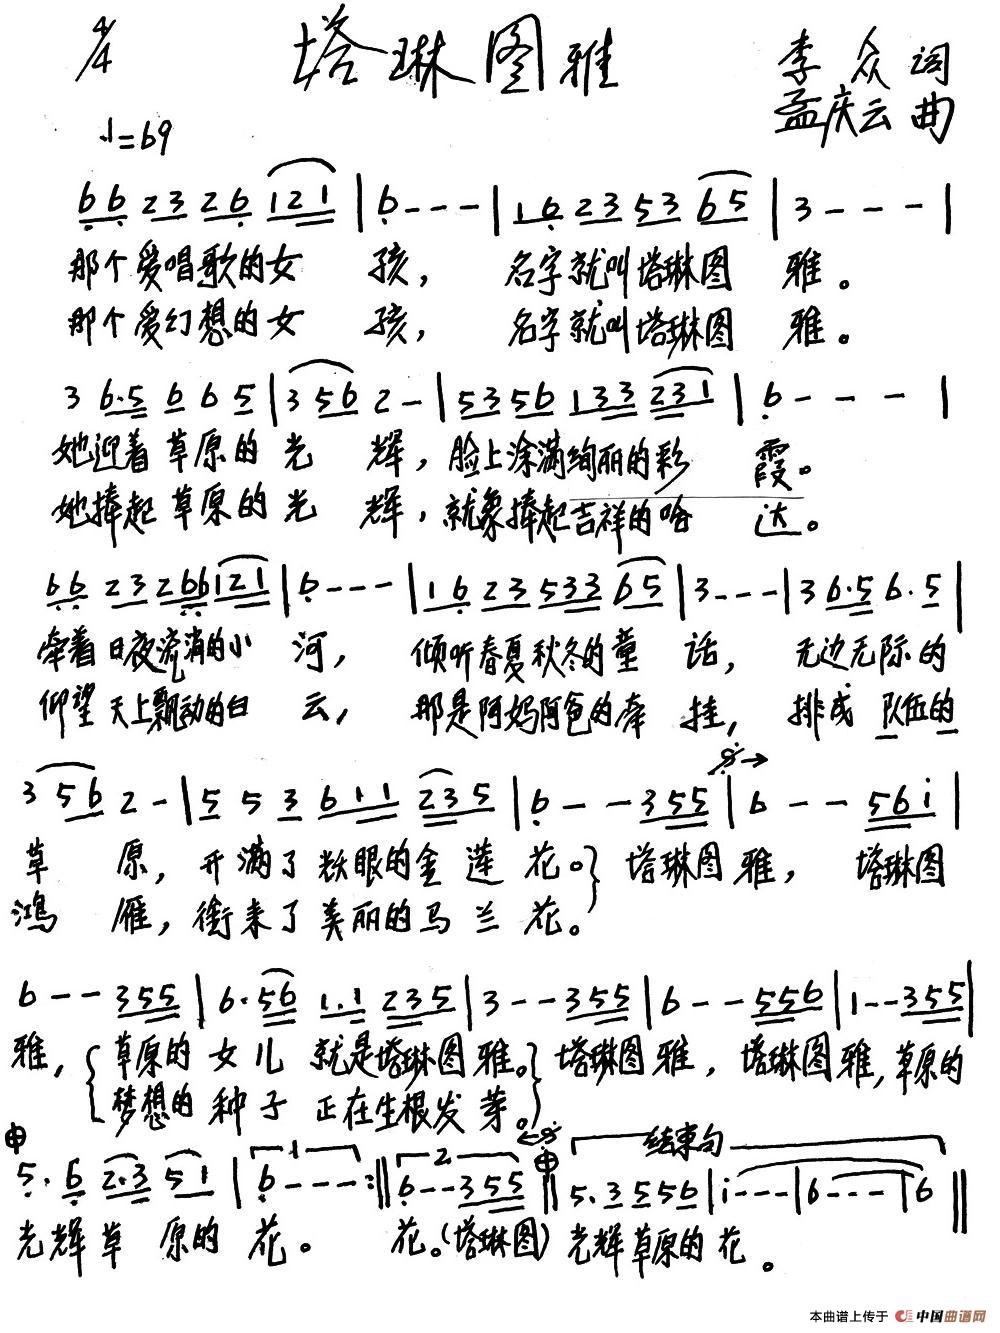 4/4 塔琳图雅 李众词
孟庆云曲
♩=69
6 6 2 3 2 6 1 2 1 | 6 - - - | 1 6 2 3 5 3 6 5 | 3 - - - |
那个爱唱歌的女 孩， 名字就叫塔琳图 雅。
那个爱幻想的女 孩， 名字就叫塔琳图 雅。
3 6·5 6 6 5 | 3 5 6 2 - | 5 3 5 6 1 3 3 2 3 1 | 6 - - - |
她迎着草原的光 辉，脸上涂满绚丽的彩 霞。
她捧起草原的光 辉，就象捧起吉祥的哈 达。
6 6 2 3 2 6 6 1 2 1 | 6 - - - | 1 6 2 3 5 3 3 6 5 | 3 - - - | 3 6·5 6·5 |
牵着日夜流淌的小 河， 倾听春夏秋冬的童 话， 无边无际的
仰望天上飘动的白 云， 那是阿妈阿爸的牵 挂， 排成队伍的
3 5 6 2 - | 5 5 3 6 1 1 2 3 5 | 6 - - 3 5 5 | 6 - - 5 6 i |
草 原，开满了耀眼的金莲花。塔琳图雅， 塔琳图
鸿 雁，衔来了美丽的马兰花。
6 - - 3 5 5 | 6·5 6 1·1 2 3 5 | 3 - - 3 5 5 | 6 - - 5 5 6 | 1 - - 3 5 5 |
雅，草原的女儿 就是塔琳图雅。塔琳图雅，塔琳图雅，草原的
梦想的种子 正在生根发芽。
结束句
5·6 2·3 5 1 | 1 6 - - - :‖ 2 6 - - 3 5 5 ‖ 5·3 5 5 6 | i - - - | 6 - - - | 6 ‖
光辉草 原的 花。 花。(塔琳图) 光辉草原的花。
本曲谱上传于 中国曲谱网